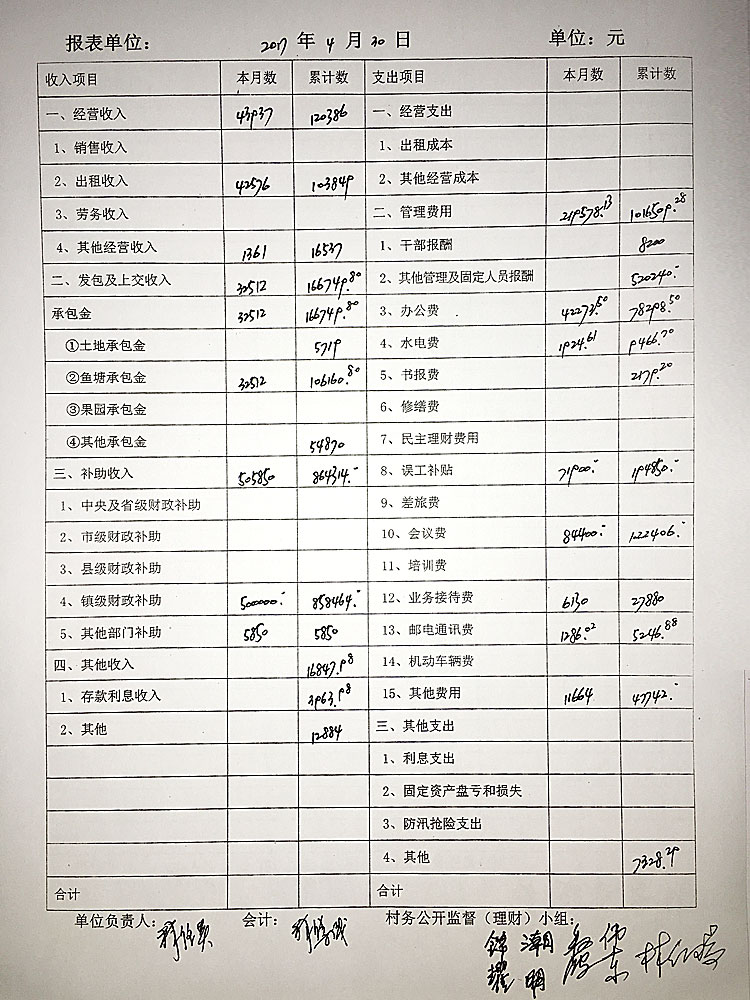 报表单位： 2017 年 4 月 30 日 单位：元
收入项目 本月数 累计数 支出项目 本月数 累计数
一、经营收入 43937 120386 一、经营支出
1、销售收入 1、出租成本
2、出租收入 42576 103849 2、其他经营成本
3、劳务收入 二、管理费用 219578.13 1016509.28
4、其他经营收入 1361 16537 1、干部报酬 8200
二、发包及上交收入 32512 166749.80 2、其他管理及固定人员报酬 520240.-
承包金 32512 166749.80 3、办公费 42273.50 78298.50
①土地承包金 5719 4、水电费 1924.61 9466.70
②鱼塘承包金 32512 106160.80 5、书报费 2179.20
③果园承包金 6、修缮费
④其他承包金 54870 7、民主理财费用
三、补助收入 505850 864314.- 8、误工补贴 71900.- 194850.-
1、中央及省级财政补助 9、差旅费
2、市级财政补助 10、会议费 84400.- 122406.-
3、县级财政补助 11、培训费
4、镇级财政补助 500000.- 858464.- 12、业务接待费 6130 27880
5、其他部门补助 5850 5850 13、邮电通讯费 1286.02 5246.88
四、其他收入 16847.98 14、机动车辆费
1、存款利息收入 3963.98 15、其他费用 11664 47742.-
2、其他 12884 三、其他支出
1、利息支出
2、固定资产盘亏和损失
3、防汛抢险支出
4、其他 7328.29
合计 合计
单位负责人： 会计： 村务公开监督（理财）小组：
锦潮
耀明